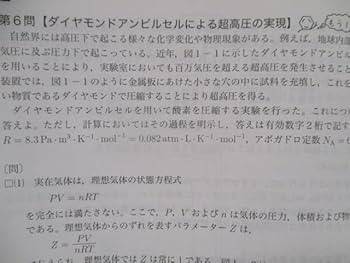 第6問【ダイヤモンドアンビルセルによる超高圧の実現】
自然界には高圧下で起こる様々な化学変化や物理現象がある。例えば，地球内部
気圧に及ぶ圧力下で起こっている。近年，図1－1に示したダイヤモンドアンビ
を用いることにより，実験室においても百万気圧を超える超高圧を発生させること
装置では，図1－1のように金属板にあけた小さな穴の中に試料を充填し，これ
い物質であるダイヤモンドで圧縮することにより超高圧を得る。
ダイヤモンドアンビルセルを用いて酸素を圧縮する実験を行った。これにつ
答えよ。ただし，計算においてはその過程を明示し，答えは有効数字2桁で記す
R = 8.3 Pa·m³·K⁻¹·mol⁻¹ = 0.082 atm·L·K⁻¹·mol⁻¹，アボガドロ定数 N_A = 6
〔問〕
□(1) 実在気体は，理想気体の状態方程式
PV = nRT
を完全には満たさない。ここで，P，Vおよびnは気体の圧力，体積および物
である。理想気体からのずれを表すパラメーターZは，
Z = PV/nRT
理想気体ではZは常に1である。